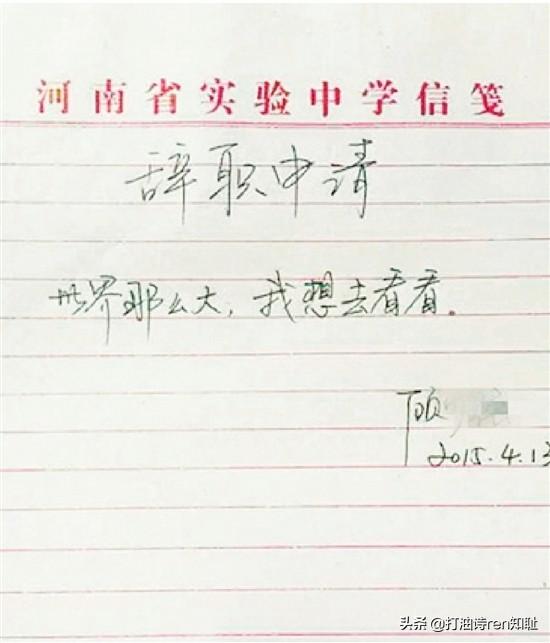 河南省实验中学信笺
辞职申请
世界那么大，我想去看看。
顾
2015.4.13
头条 @打油诗ren知耻